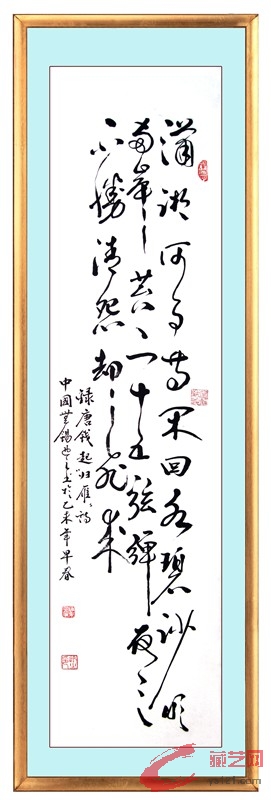 瀟湘何事等闲回水碧沙明
两岸苔二十五弦彈夜月
不勝清怨却飛来
録唐钱起“归雁”诗
中国無锡书于乙未年早春
藏艺网